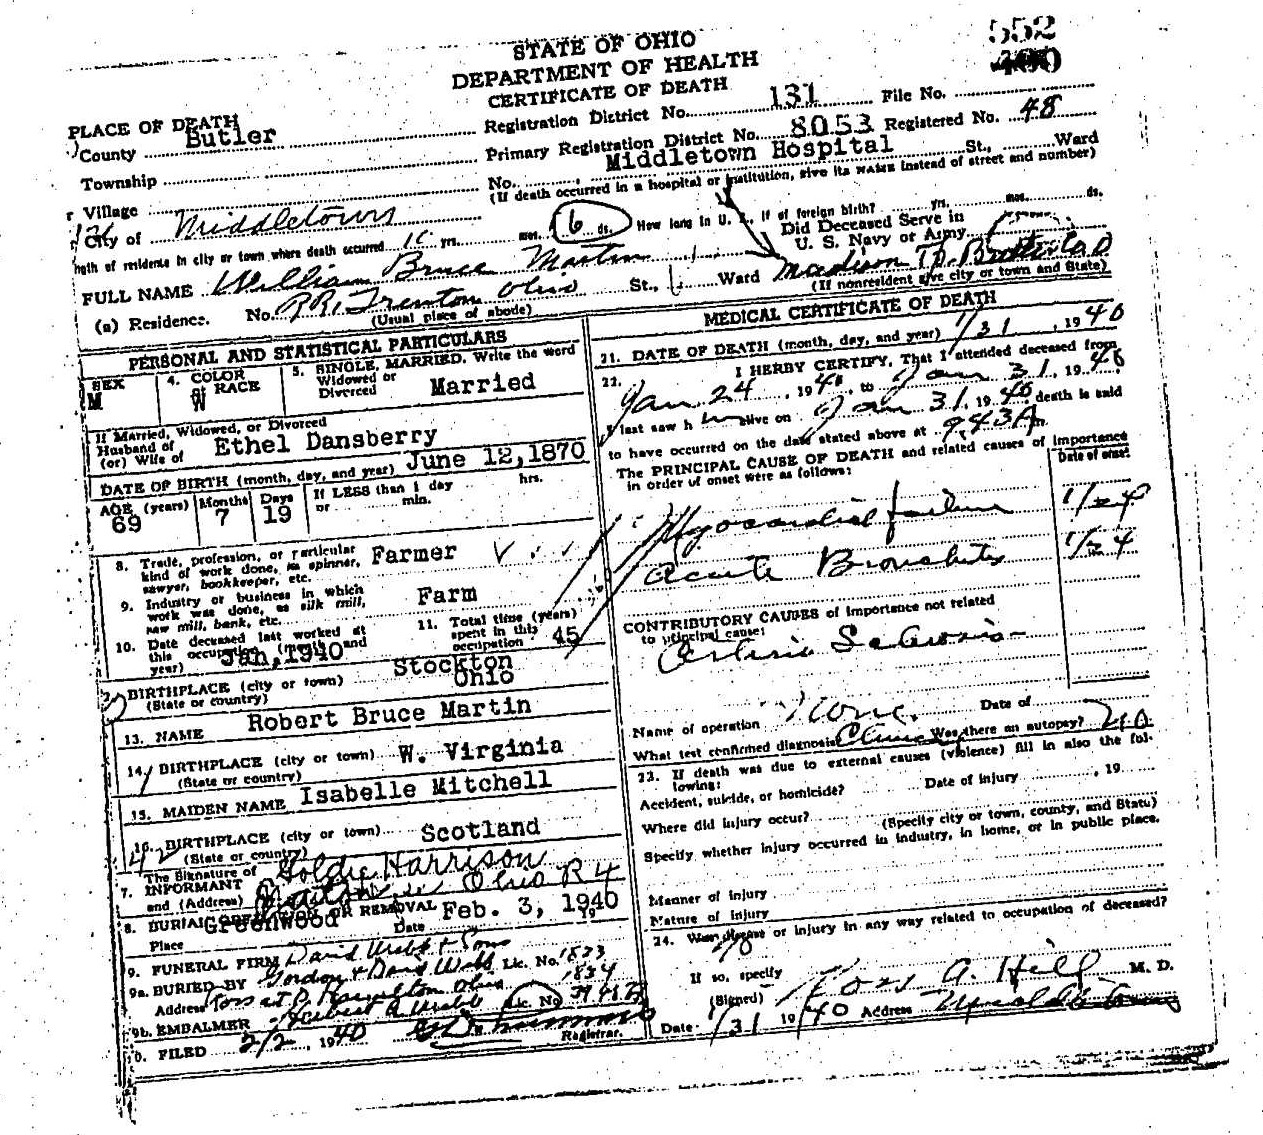 552
STATE OF OHIO
DEPARTMENT OF HEALTH
CERTIFICATE OF DEATH
PLACE OF DEATH
County Butler
Registration District No. 131 File No.
Township
Primary Registration District No. 8053 Registered No. 48
Village
No. Middletown Hospital St., Ward
(If death occurred in a hospital or institution, give its NAME instead of street and number)
City of Middletown
Length of residence in city or town where death occurred yrs. mos. 6 ds. How long in U. S., if of foreign birth? yrs. mos. ds.
Did Deceased Serve in
U. S. Navy or Army
FULL NAME William Bruce Martin
(a) Residence. No. RR, Trenton Ohio St., Ward Madison Tp. Butler Co. O
(Usual place of abode) (If nonresident give city or town and State)
PERSONAL AND STATISTICAL PARTICULARS
SEX
M
4. COLOR OR RACE
W
5. SINGLE, MARRIED, Write the word
Widowed or
Divorced Married
If Married, Widowed, or Divorced
Husband of
(or) Wife of Ethel Dansberry
DATE OF BIRTH (month, day, and year) June 12, 1870
AGE (years) Months Days If LESS than 1 day hrs.
69 7 19 or min.
8. Trade, profession, or particular
kind of work done, as spinner,
sawyer, bookkeeper, etc. Farmer
9. Industry or business in which
work was done, as silk mill,
saw mill, bank, etc. Farm
10. Date deceased last worked at
this occupation (month and
year) Jan, 1940
11. Total time (years)
spent in this
occupation 45
BIRTHPLACE (city or town) Stockton
(State or country) Ohio
13. NAME Robert Bruce Martin
14. BIRTHPLACE (city or town) W. Virginia
(State or country)
15. MAIDEN NAME Isabelle Mitchell
16. BIRTHPLACE (city or town) Scotland
(State or country)
The Signature of
7. INFORMANT Goldie Harrison
and (Address) Hamilton Ohio R 4
8. BURIAL CREMATION OR REMOVAL
Place Greenwood Date Feb. 3, 1940
9. FUNERAL FIRM David Webb & Sons
9a. BURIED BY Gordon & David Webb Lic. No. 1833
1834
Address Ross at D Hamilton Ohio
9b. EMBALMER Herbert A Webb Lic. No.
0. FILED 2/2, 1940 Registrar.
MEDICAL CERTIFICATE OF DEATH
21. DATE OF DEATH (month, day, and year) 1/31, 1940
22. I HERBY CERTIFY, That I attended deceased from
Jan 24, 1940, to Jan 31, 1940
I last saw him alive on Jan 31, 1940, death is said
to have occurred on the date stated above at 9:43A m.
The PRINCIPAL CAUSE OF DEATH and related causes of importance
in order of onset were as follows: Date of onset
Myocardial failure 1/24
Acute Bronchitis 1/24
CONTRIBUTORY CAUSES of importance not related
to principal cause:
Arterio Sclerosis
Name of operation None. Date of
What test confirmed diagnosis Clinical Was there an autopsy? No
23. If death was due to external causes (violence) fill in also the following:
Accident, suicide, or homicide? Date of injury, 19
Where did injury occur?
(Specify city or town, county, and State)
Specify whether injury occurred in industry, in home, or in public place.
Manner of injury
Nature of injury
24. Was disease or injury in any way related to occupation of deceased?
No
If so, specify
(Signed) Ross A. Hill M. D.
Date 1/31 1940 Address Middletown